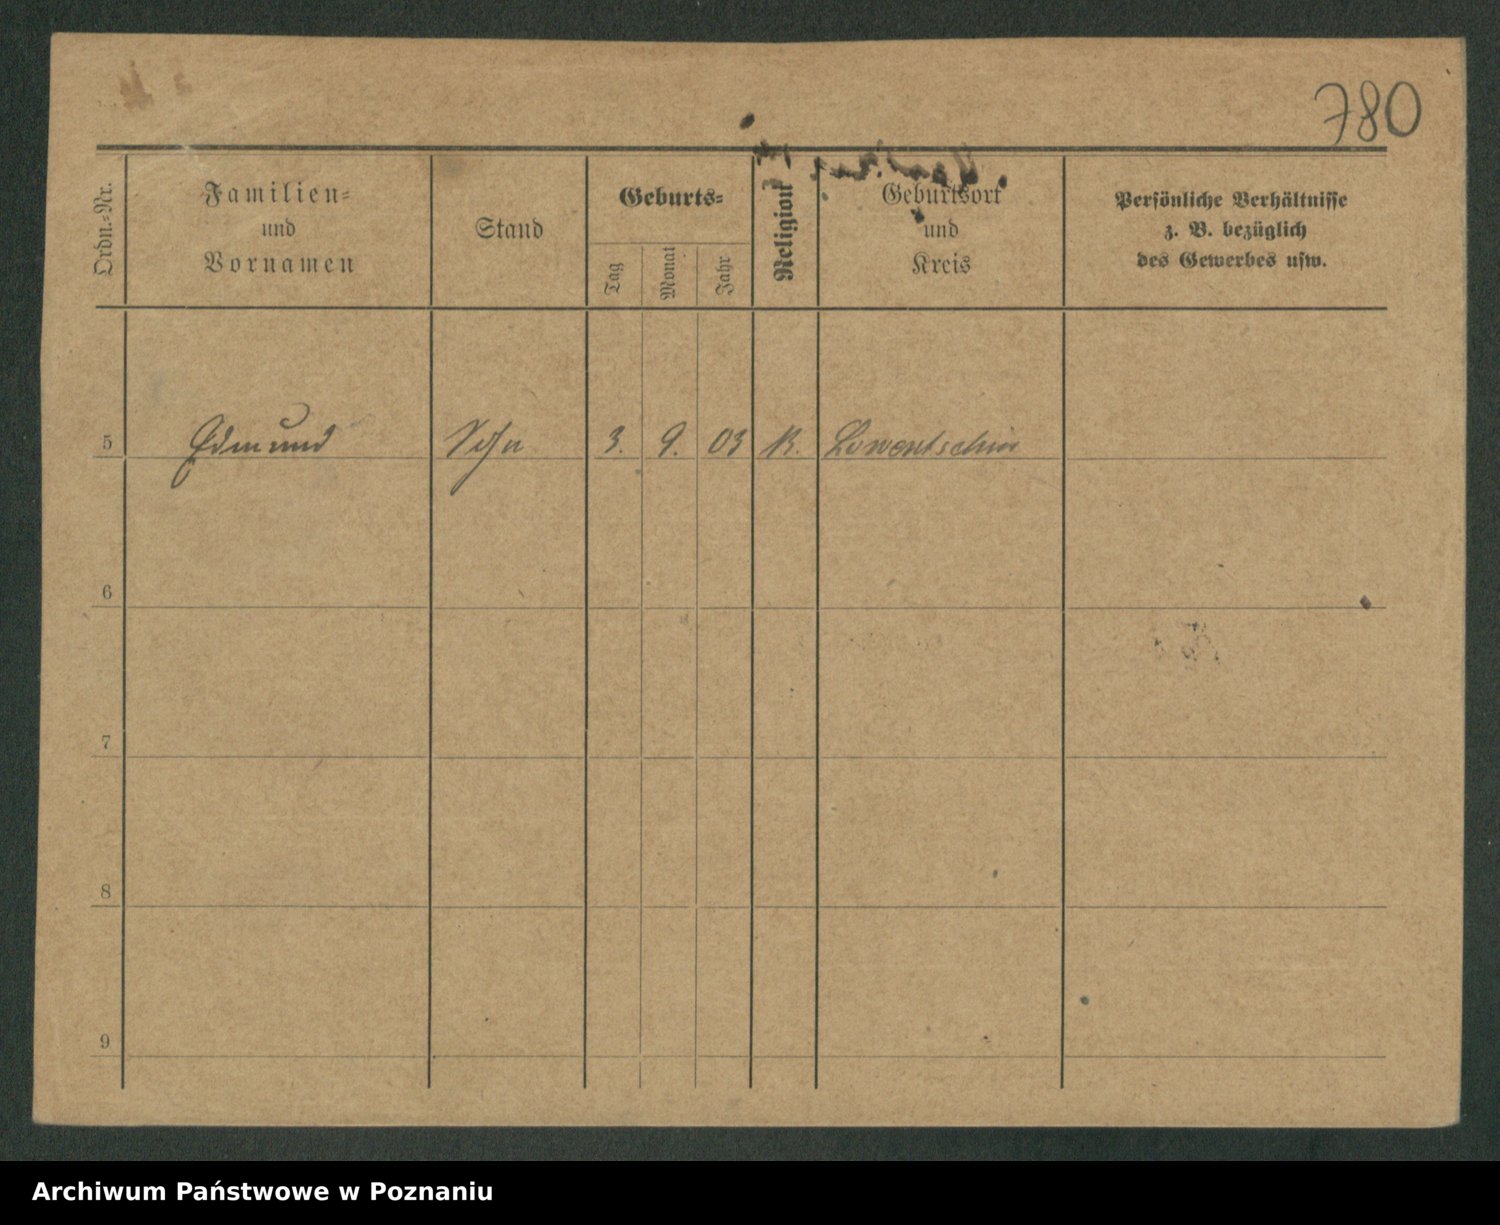 780
Ordn.-Nr.
Familien-
und
Vornamen
Stand
Geburts-
Tag
Monat
Jahr
Religion
Geburtsort
und
Kreis
Persönliche Verhältnisse
z. B. bezüglich
des Gewerbes usw.
5 Edmund Sohn 3. 9. 03 K. Lowentschin
6
7
8
9
Archiwum Państwowe w Poznaniu